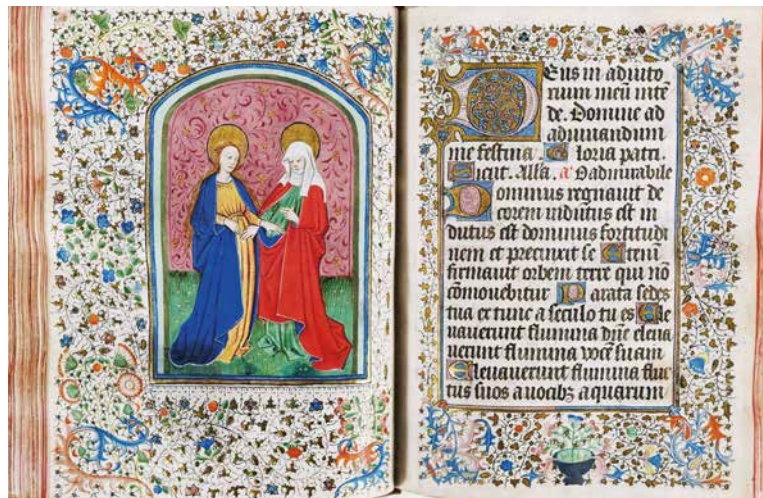 Deus in adiuto
rium meū inte
de. Domine ad
adiuuandum
me festina. Gloria patri.
Sicut. Alla. a͞ O admirabile
Dominus regnauit de
corem indutus est in
dutus est dominus fortitudi
nem et precinxit se Etenī
firmauit orbem terre qui nō
cōmouebitur Parata sedes
tua ex tunc a seculo tu es Ele
uauerunt flumina dn̄e eleua
uerunt flumina vocē suam
Eleuauerunt flumina fluc
tus suos a vocibꝫ aquarum